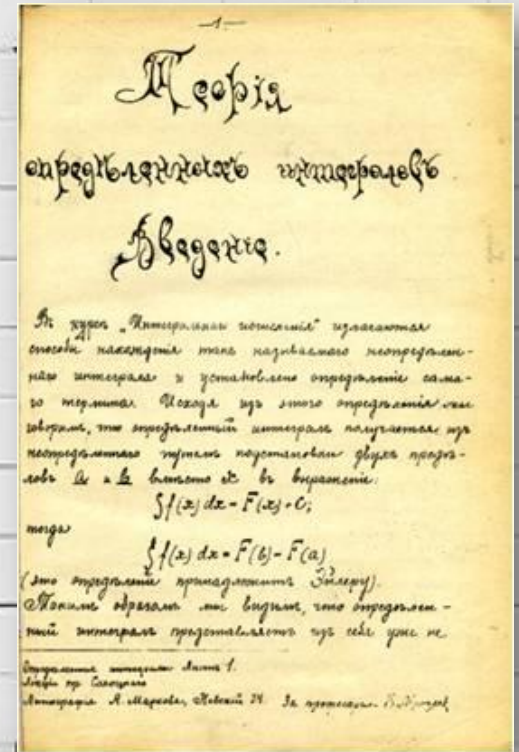 —1—
Теорія
опредѣленныхъ интеграловъ
Введеніе.
Въ курсѣ „Интегральнаго исчисленія" излагаются
способы нахожденія такъ называемаго неопредѣлен-
наго интеграла и установлено опредѣленіе сама-
го термина. Исходя изъ этого опредѣленія мы
говоримъ, что опредѣленный интегралъ получается изъ
неопредѣленнаго путемъ подстановки двухъ предѣ-
ловъ a и b вмѣсто x въ выраженіе:
∫f(x)dx = F(x) + C;
тогда
∫f(x)dx = F(b) - F(a)
(это опредѣленіе принадлежитъ Эйлеру).
Такимъ образомъ мы видимъ, что опредѣлен-
ный интегралъ представляетъ изъ себя уже не
Опредѣленные интегралы Листъ 1.
Лекціи пр.
Литографія А. Маркова, Невскій 34. За